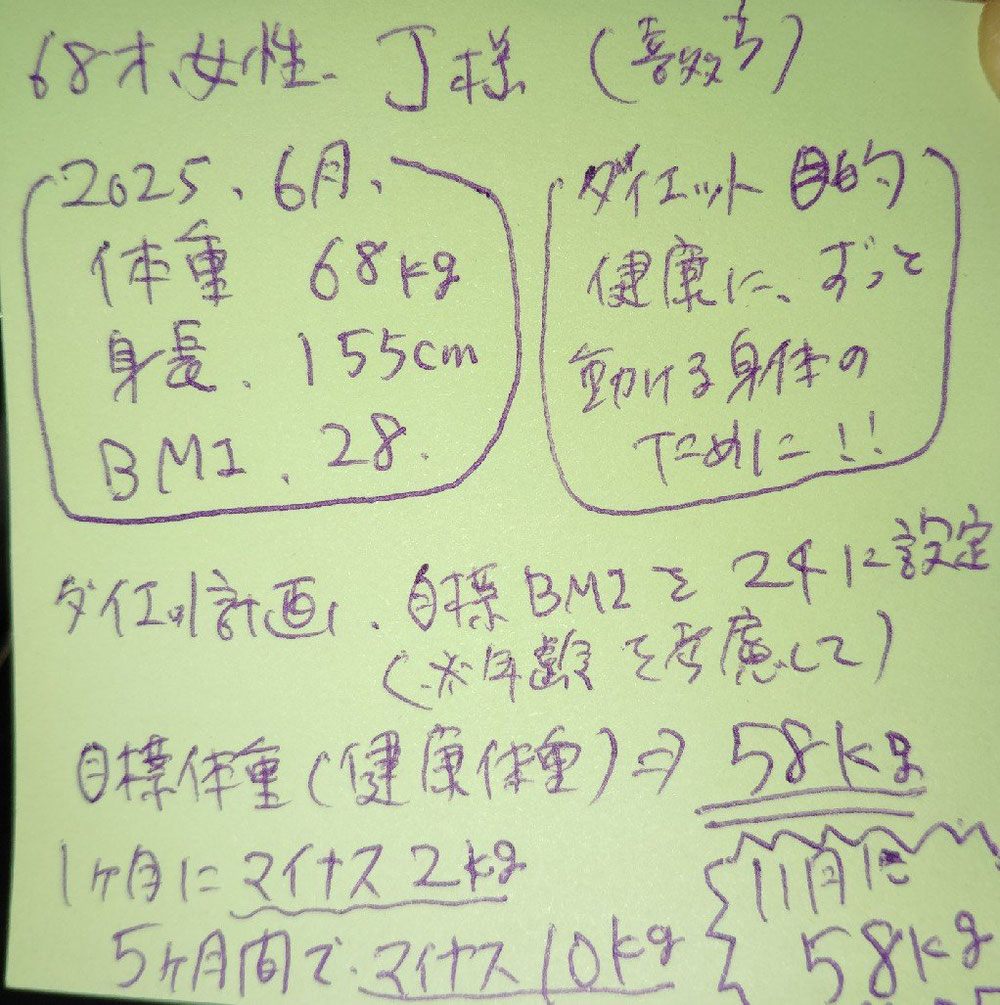 68才、女性、J様（喜多方）
2025、6月、
体重 68kg
身長、155cm
BMI、28.
ダイエット目的
健康に、ずっと
動ける身体の
ために!!
ダイエット計画、目標BMIを24に設定
（※年齢を考慮して）
目標体重（健康体重）⇒ 58kg
1ヶ月にマイナス2kg
5ヶ月間でマイナス10kg
11月に
58kg